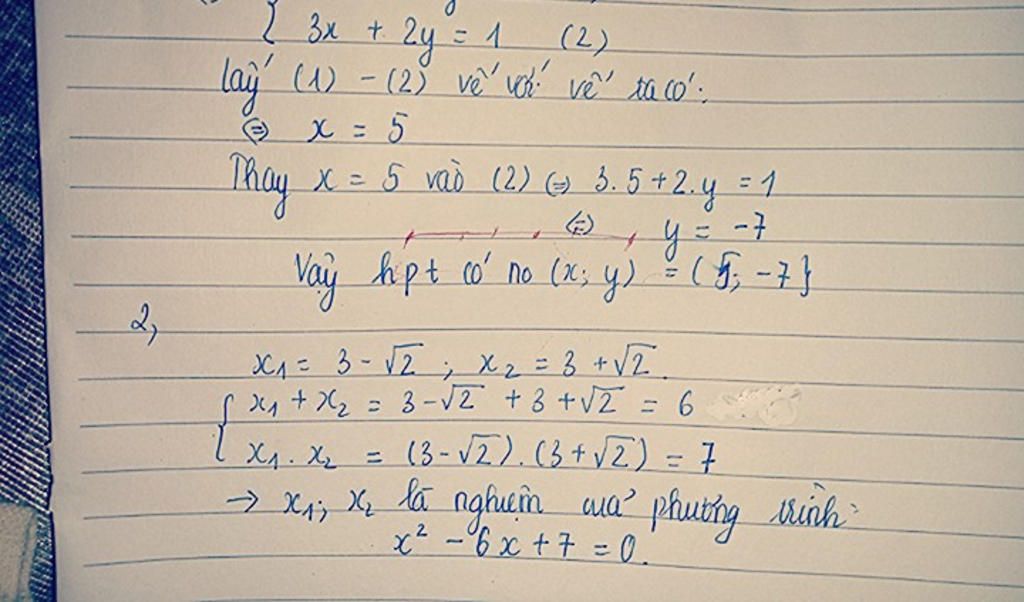 3x + 2y = 1 (2)
lấy (1) - (2) vế với vế ta có:
⇔ x = 5
Thay x = 5 vào (2) ⇔ 3.5 + 2.y = 1
⇔ y = -7
Vậy hpt có no (x; y) = (5; -7}
2,
x₁ = 3 - √2 ; x₂ = 3 + √2.
x₁ + x₂ = 3 - √2 + 3 + √2 = 6
x₁ . x₂ = (3 - √2) . (3 + √2) = 7
→ x₁; x₂ là nghiệm của phương trình:
x² - 6x + 7 = 0.